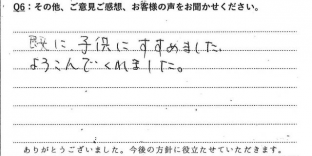 Q6：その他、ご意見ご感想、お客様の声をお聞かせください。
既に、子供にすすめました。
よろこんでくれました。
ありがとうございました。今後の方針に役立たせていただきます。